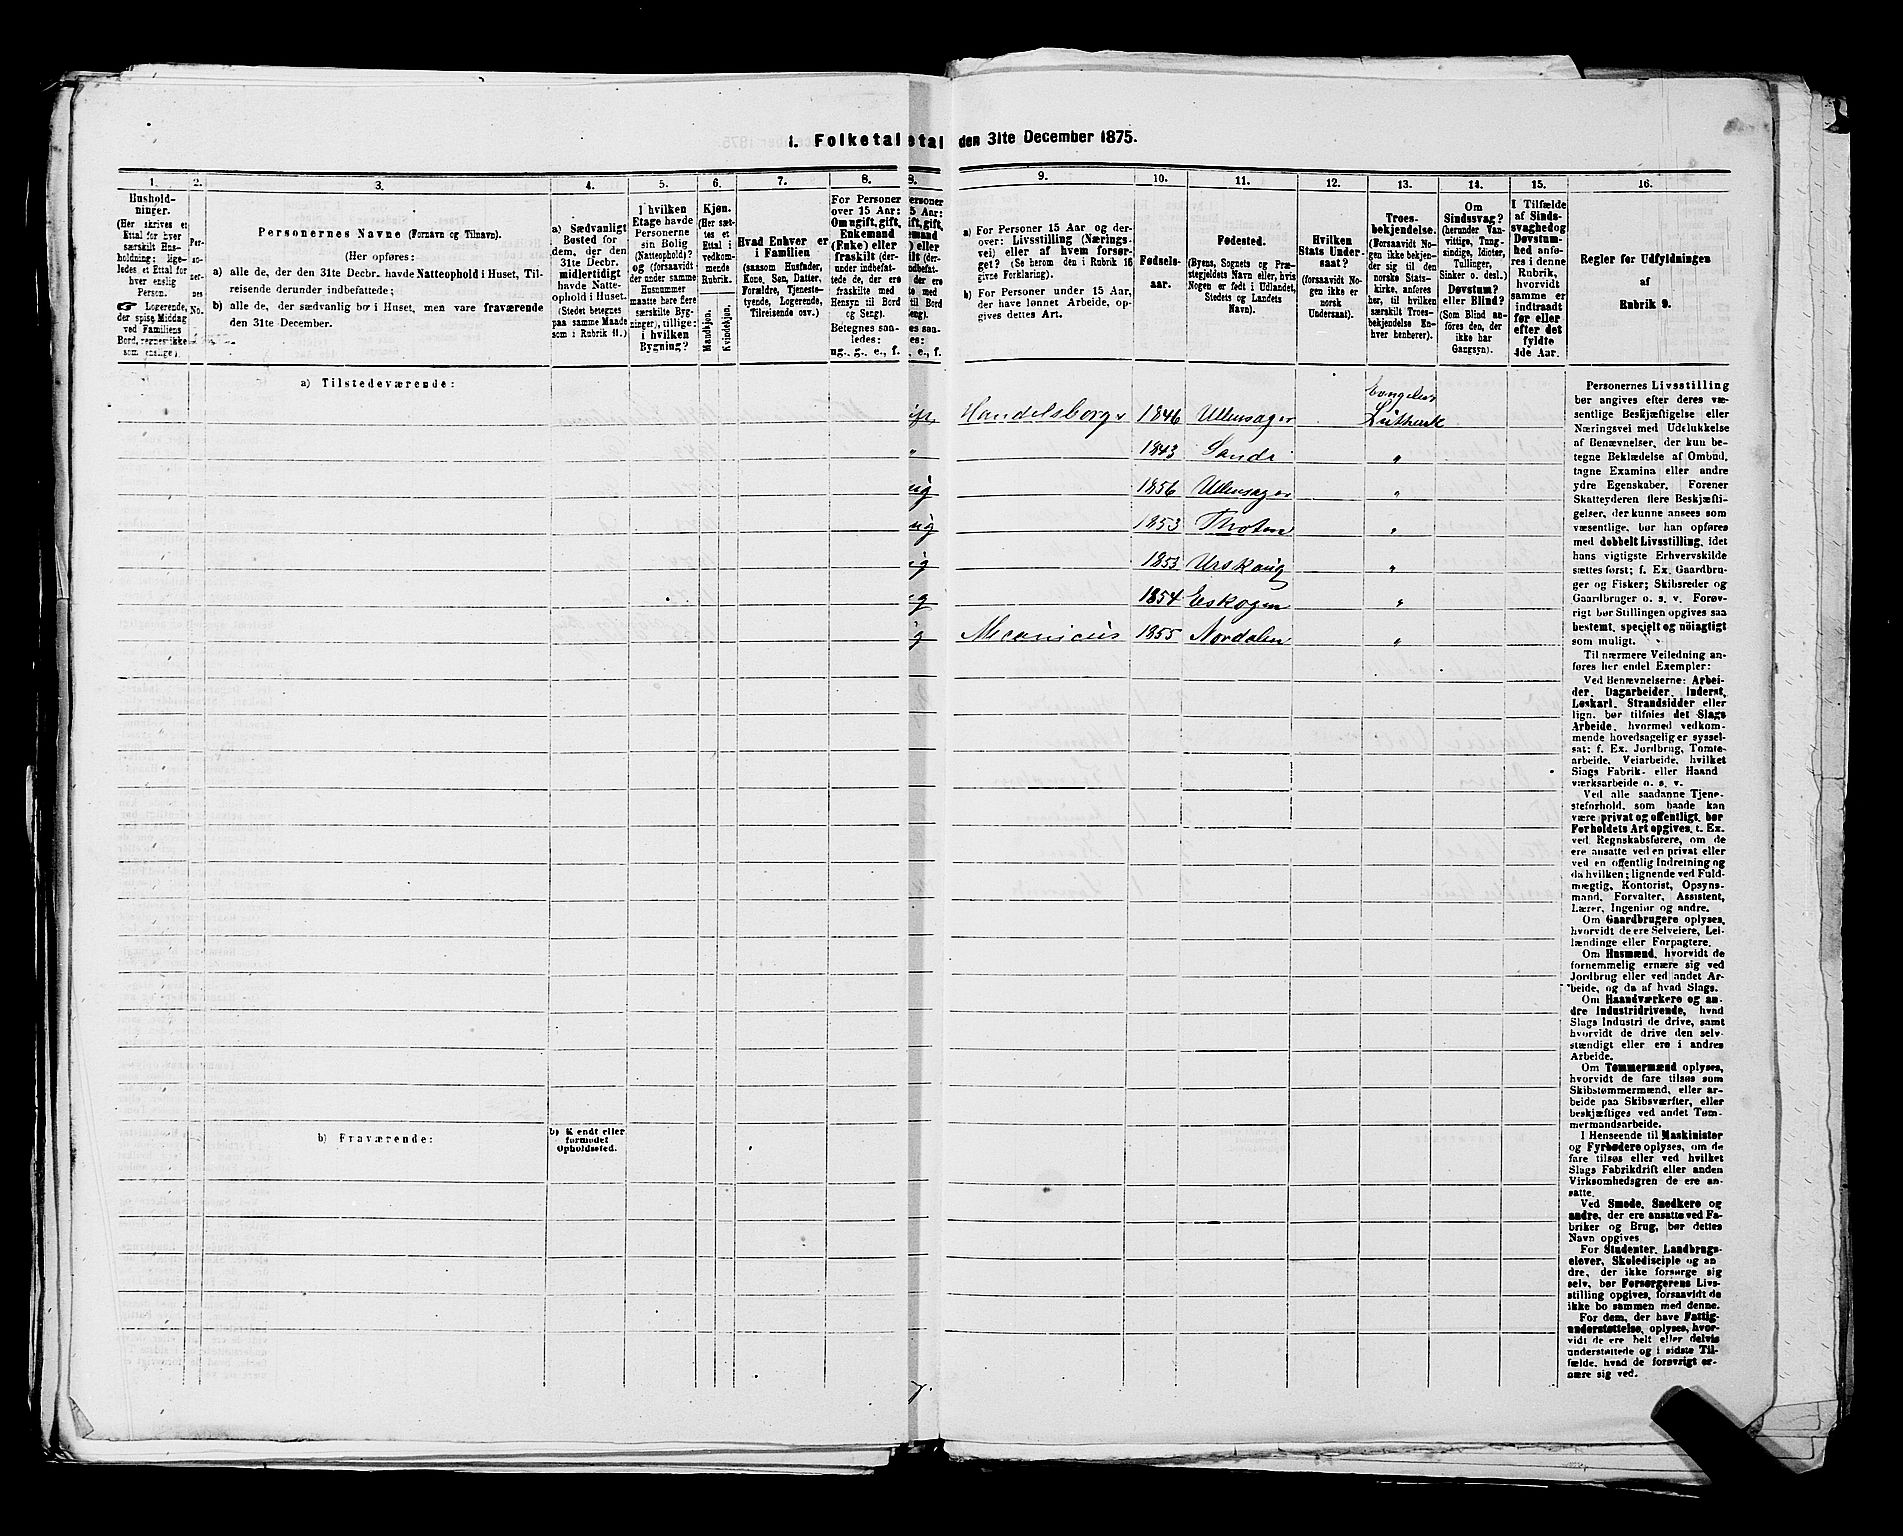 1. Folketal
1.
Hushold-
ninger.
(Her skrives et
Ettal for hver
særskilt Hus-
holdning; lige-
ledes et Ettal for
hver enslig
Person.
Logerende,
der spise Middag
ved Familiens
Bord, regnes ikke
som enslige).
2.
Per-
so-
ner-
nes
No.
3.
Personernes Navne (Fornavn og Tilnavn).
(Her opføres:
a) alle de, der den 31te Decbr. havde Natteophold i Huset, Til-
reisende derunder indbefattede;
b) alle de, der sædvanlig bor i Huset, men vare fraværende
den 31te December.
4.
a) Sædvanligt
Bosted for
dem, der den
31te Decbr.
midlertidigt
havde Natte-
ophold i Huset.
(Stedet betegnes
paa samme Maade
som i Rubrik 11.)
5.
I hvilken
Etage havde
Personerne
sin Bolig
(Natteophold)?
og (forsaavidt
der under samme
Husnummer
maatte høre flere
særskilte Byg-
ninger), tillige:
i hvilken
Bygning?
6.
Kjøn.
(Her sæt-
tes et
Ettal i
vedkom-
mende
Rubrik.
Mandkjøn.
Kvindekjøn.
7.
Hvad Enhver er
i Familien
(saasom Husfader,
Kone, Søn, Datter,
Forældre, Tjeneste-
tyende, Logerende,
Tilreisende osv.)
8.
For Personer
over 15 Aar:
Om ugift, gift,
Enkemand
(Enke) eller
fraskilt (der-
under indbefat-
tede de, der ere
fraskilte med
Hensyn til Bord
og Seng).
Betegnes saa-
ledes:
ug., g., e., f.
a) Tilstedeværende:
b) Fraværende:
b) Kjendt eller
formodet
Opholdssted.
etal den 31te December 1875.
8.
ersoner
5 Aar:
ift, gift,
emand
) eller
ilt (der-
ndbefat-
der ere
te med
til Bord
eng).
nes saa-
es:
. e., f.
9.
a) For Personer 15 Aar og der-
over: Livsstilling (Nærings-
vei) eller af hvem forsør-
get? (Se herom den i Rubrik 16
givne Forklaring).
b) For Personer under 15 Aar,
der have lønnet Arbeide, op-
gives dettes Art.
10.
Fødsels-
aar.
11.
Fødested.
(Byens, Sognets og Præ-
stegjeldets Navn eller, hvis
Nogen er født i Udlandet,
Stedets og Landets
Navn).
12.
Hvilken
Stats Under-
saat?
(forsaavidt No-
gen ikke er
norsk
Undersaat).
13.
Troes-
bekjendelse.
(Forsaavidt No-
gen ikke bekjen-
der sig til den
norske Stats-
kirke, anføres
her, til hvilken
særskilt Troes-
bekjendelse En-
hver henhører).
14.
Om
Sindssvag?
(herunder Van-
vittige, Tung-
sindige, Idioter,
Tullinger,
Sinker o. desl.)
Døvstum?
eller Blind?
(Som Blind an-
føres den, der
ikke har
Gangsyn).
15.
I Tilfælde
af Sinds-
svaghed og
Døvstum-
hed anfø-
res i denne
Rubrik,
hvorvidt
samme er
indtraadt
før eller
efter det
fyldte
4de Aar.
16.
Regler for Udfyldningen
af
Rubrik 9.
Handelsborger 1846 Ullensager Evangelisk Luthersk
" 1843 Sande "
ug 1856 Ullensager "
ug 1853 Thoten "
ig 1853 Urskoug "
g 1854 Eskogen "
g Mecanicus 1855 Nordalen "
Personernes Livsstilling
bør angives efter deres væ-
sentlige Beskjæftigelse eller
Næringsvei med Udelukkelse
af Benævnelser, der kun be-
tegne Beklædelse af Ombud,
tagne Examina eller andre
ydre Egenskaber. Forener
Skatteyderen flere Beskjæfti-
gelser, der kunne ansees som
væsentlige, bør han opføres
med dobbelt Livsstilling, idet
hans vigtigste Erhvervskilde
sættes først; f. Ex. Gaardbru-
ger og Fisker; Skibsreder og
Gaardbruger o. s. v. Forøv-
rigt bør Stillingen opgives saa
bestemt, specielt og nøiagtigt
som muligt.
Til nærmere Veiledning an-
føres her endel Exempler:
Ved Benævnelserne: Arbei-
der, Dagarbeider, Inderst,
Løskarl, Strandsidder eller
lign. bør tilføies det Slags
Arbeide, hvormed vedkom-
mende hovedsagelig er syssel-
sat; f. Ex. Jordbrug, Tomte-
arbeide, Veiarbeide, hvilket
Slags Fabrik- eller Haand
værksarbeide o. s. v.
Ved alle saadanne Tjene-
steforhold, som baade kan
være privat og offentligt, bør
Forholdets Art opgives, t. Ex.
ved Regnskabsførere, om de
ere ansatte ved en privat eller
ved en offentlig Indretning og
da hvilken; lignende ved Fuld-
mægtig, Kontorist, Opsyns-
mand, Forvalter, Assistent,
Lærer, Ingeniør og andre.
Om Gaardbrugere oplyses,
hvorvidt de ere Selveiere, Lei-
lændinge eller Forpagtere.
Om Husmænd, hvorvidt de
fornemmelig ernære sig ved
Jordbrug eller ved andet Ar-
beide, og da af hvad Slags.
Om Haandværkere og an-
dre Industridrivende, hvad
Slags Industri de drive, samt
hvorvidt de drive den selv-
stændigt eller ere i andres
Arbeide.
Om Tømmermænd oplyses,
hvorvidt de fare tilsøs som
Skibstømmermænd, eller ar-
beide paa Skibsværfter, eller
beskjæftiges ved andet Tøm-
mermandsarbeide.
I Henseende til Maskinister
og Fyrbødere oplyses, om de
fare tilsøs eller ved hvilket
Slags Fabrikdrift eller anden
Virksomhedsgren de ere an-
satte.
Ved Smede, Snedkere og
andre, der ere ansatte ved Fa-
briker og Brug, bør dettes
Navn opgives
For Studenter, Landbrugs-
elever, Skoledisciple og an
dre, der ikke forsørge sig
selv, bør Forsørgerens Livs-
stilling opgives, forsaavidt de
ikke bo sammen med denne.
For dem, der have Fattig-
understøttelse, oplyses, hvor-
vidt de ere helt eller delvis
understøttede og i sidste Til-
fælde, hvad de forøvrigt er-
nære sig ved.